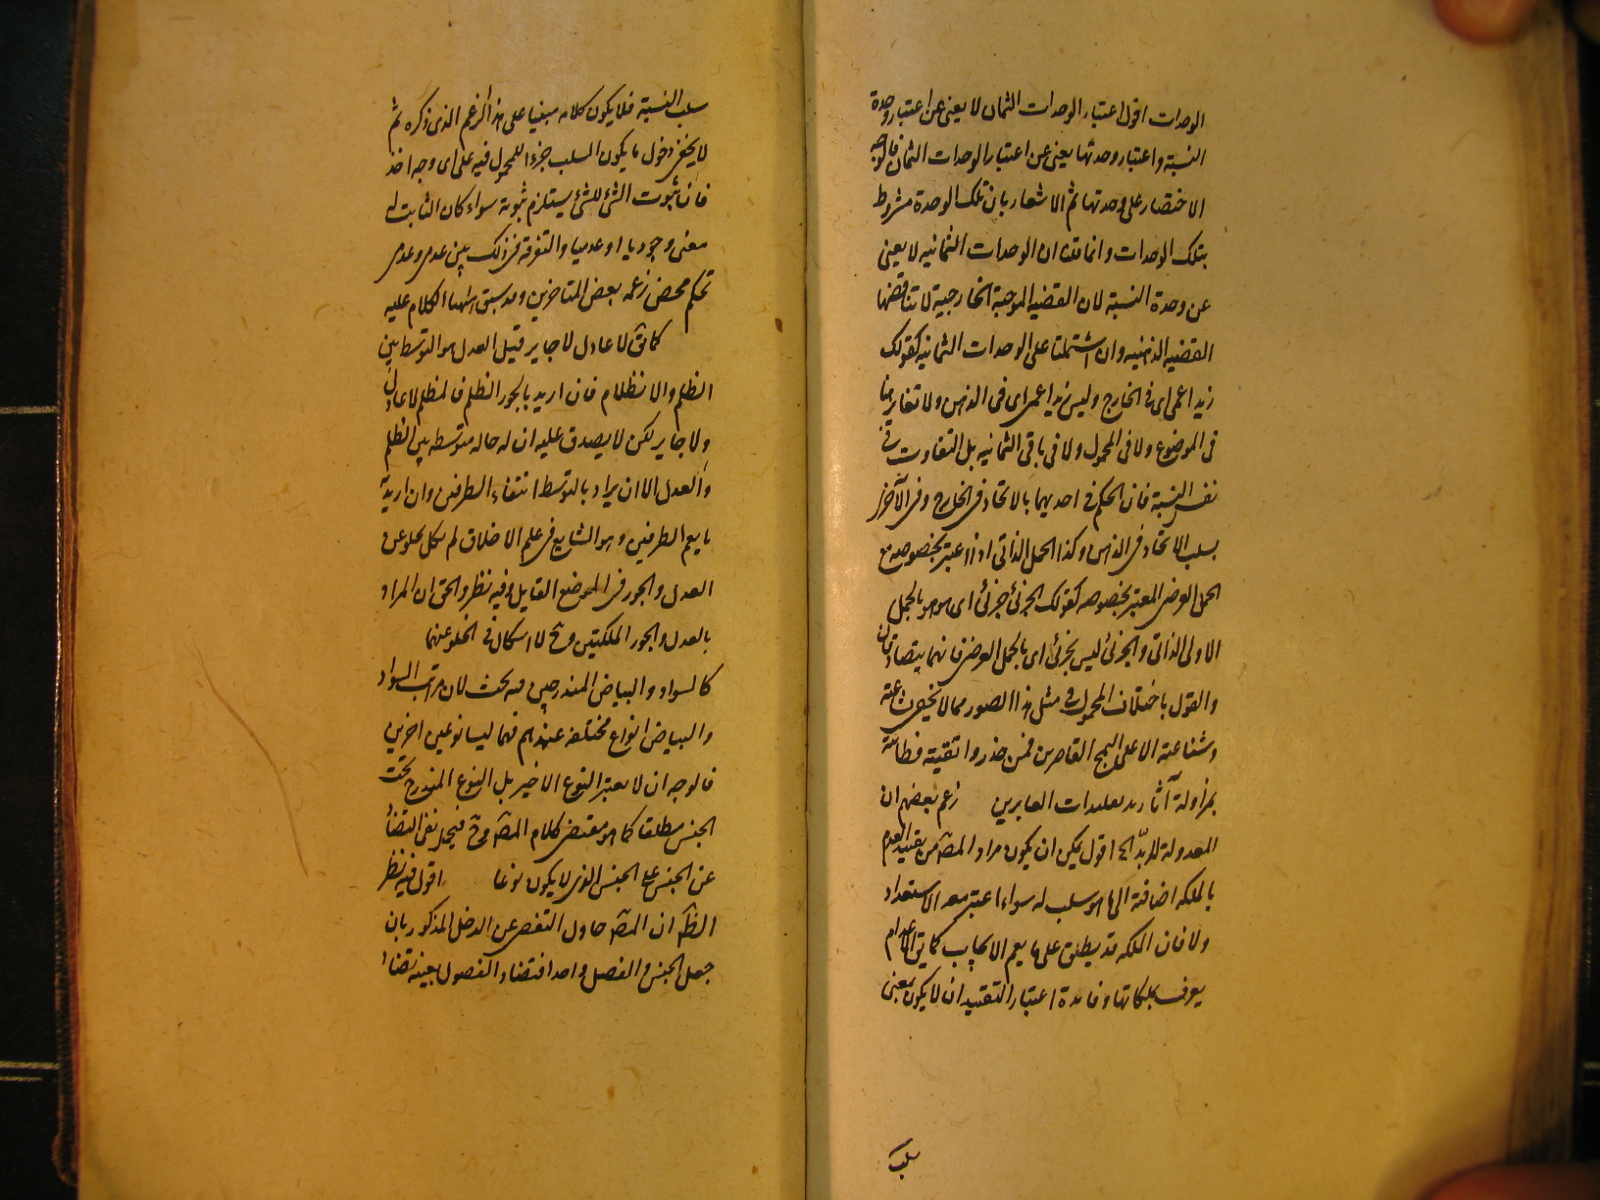 الوحدات اقول اعتبار الوحدات الثمان لا يغنى عن اعتبار وحدة
النسبة و اعتبار وحدتها يغنى عن اعتبار الوحدات الثمان فالوجه
الاختصار على وحدتها ثم الاشعار بان تلك الوحدة مشروط
بتلك الوحدات و انما قلنا ان الوحدات الثمانيه لا يغنى
عن وحدة النسبة لان القضيه الموجبة الخارجية لا تناقضها
القضيه الذهنيه و ان اشتملتا على الوحدات الثمانيه كقولك
زيد اعمى اى فى الخارج و ليس زيد اعمى اى فى الذهن و لا تغاير هنا
فى الموضوع و لا فى المحمول و لا فى باقى الثمانيه بل التفاوت فى
نفس النسبة فان الحكم فى احديهما بالاتحاد فى الخارج و فى الآخر
بسلب الاتحاد فى الذهن و كذا الحمل الذاتى اذا اعتبر بخصوصه مع
الحمل العرضى المعتبر بخصوصه كقولك الجزئى جزئى اى هو هو بالحمل
الاولى الذاتى و الجزئى ليس بجزئى اى بالحمل العرضى فانهما يتصادقان
و القول باختلاف المحمول فى مثل هذا الصور مما لا يخفى شناعته
و شناعته الا على الهمج القاصرين فمن حذر و اتقيته فظاعته
بمزاولة آثار تقليدات العابرين زعم بعضهم ان
المعدولة للربّ الخ اقول يمكن ان يكون مراد المصّ من تقييد العدم
بالملكه اضافة الى ما هو سلب له سواء اعتبر معه الاستعداد
و لا فان الملكه قد يطلق على ما يعم الايجاب كما يقال الاعدام
يعرف بملكاتها و فائدة اعتبار التقييد ان لا يكون بمعنى
سلب
سلب النسبة فلا يكون كلامه مبنيا على هذا الزعم الذى ذكره ثم
لا يخفى دخول ما يكون السلب جزءا للمحمول فيه على اى وجه اخذ
فان ثبوت الشئ للشئ يستلزم ثبوته سواء كان الثابت له
معنى وجوديا او عدميا و التفرقة فى ذلك بين عدمى و عدمى
تحكم محض زعمه بعض المتاخرين و قد سبق اشباع الكلام عليه
كما فى لا عادل لا جاير قيل العدل هو التوسط بين
الظلم و الانظلام فان اريد بالجور الظلم فالمظلم لا عادل
و لا جاير لكن لا يصدق عليه ان له حاله متوسطه بين الظلم
و العدل الا ان يراد بالتوسط انتفاء الطرفين و ان اريد به
ما يعم الطرفين و هو الشايع فى علم الاخلاق لم يكن يخلو عن
العدل و الجور فى الموضع القابل و فيه نظر و الحق ان المراد
بالعدل و الجور الملكتين و ح لا اشكال فى الخلو عنهما
كالسواد و البياض المندرجين فيه بحث لان مراتب السواد
و البياض انواع مختلفة عندهم فهما ليسا نوعين اخرين
فالوجه ان لا يعتبر النوع الاخير بل النوع المندرج تحت
الجنس مطلقا كما هو مقتضى كلام المصّ و ح فيحمل نفى التضاد
عن الجنس على الجنس الذى لا يكون نوعا اقول فيه نظر
الظّ ان المصّ حاول التفصى عن الدخل المذكور بان
جعل الجنس و الفصل واحدا فتضاد الفصول بعينه تضاد